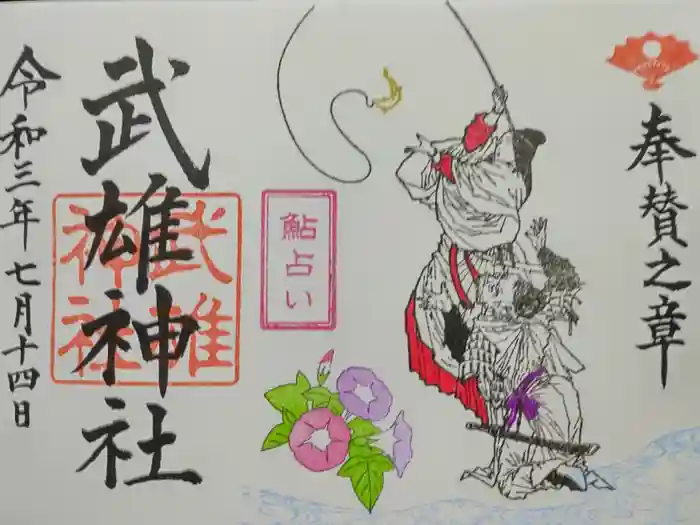 奉賛之章
鮎占い
武雄神社
武雄
神社
令和三年七月十四日